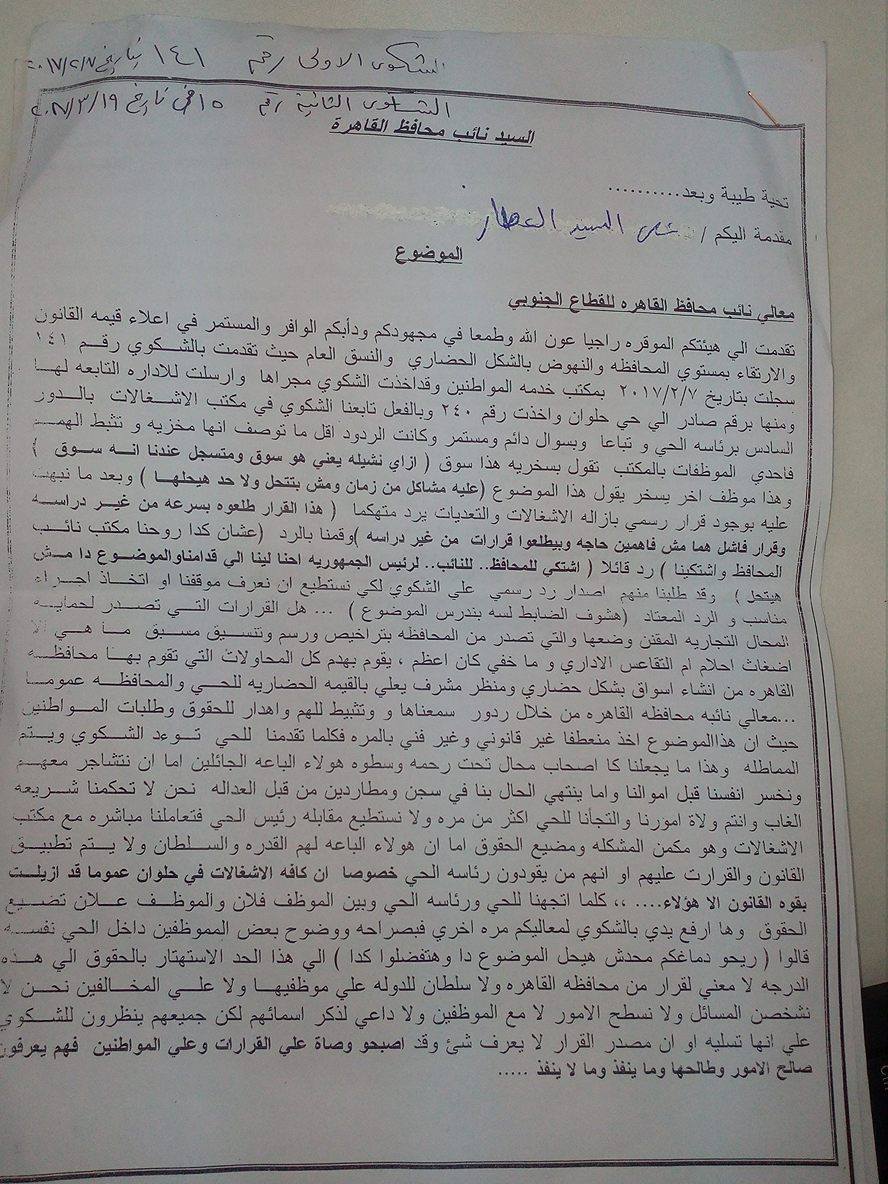 الشكوى الاولى رقم ١٤١ بتاريخ ٢٠١٧/٢/٧
الشكوى الثانية رقم ١٥ في تاريخ ٢٠١٧/٣/١٩
السيد نائب محافظ القاهرة
تحية طيبة وبعد..........
مقدمة اليكم / السيد العطار
الموضوع
معالي نائب محافظ القاهره للقطاع الجنوبي
تقدمت الي هيئتكم الموقره راجيا عون الله وطمعا في مجهودكم ودأبكم الوافر والمستمر في اعلاء قيمه القانون
والارتقاء بمستوي المحافظه والنهوض بالشكل الحضاري والنسق العام حيث تقدمت بالشكوي رقم ١٤١
سجلت بتاريخ ٢٠١٧/٢/٧ بمكتب خدمه المواطنين وقداخذت الشكوي مجراها وارسلت للاداره التابعه لها
ومنها برقم صادر الي حي حلوان واخذت رقم ٢٤٠ وبالفعل تابعنا الشكوي في مكتب الاشغالات بالدور
السادس برئاسه الحي و تباعا وبسوال دائم ومستمر وكانت الردود اقل ما توصف انها مخزيه و تثبط الهمم
فاحدي الموظفات بالمكتب تقول بسخريه هذا سوق ( ازاي نشيله يعني هو سوق ومتسجل عندنا انه سوق )
وهذا موظف اخر يسخر يقول هذا الموضوع (عليه مشاكل من زمان ومش بتتحل ولا حد هيحلها ) وبعد ما نبهت
عليه بوجود قرار رسمي بازاله الاشغالات والتعديات يرد متهكما ( هذا القرار طلعوه بسرعه من غير دراسه
وقرار فاشل هما مش فاهمين حاجه وبيطلعوا قرارات من غير دراسه )وقمنا بالرد (عشان كدا روحنا مكتب نائب
المحافظ واشتكينا ) رد قائلا ( اشتكي للمحافظ.. للنائب.. لرئيس الجمهوريه احنا لينا الي قدامناوالموضوع دا مش
هيتحل ) وقد طلبنا منهم اصدار رد رسمي علي الشكوي لكي نستطيع ان نعرف موقفنا او اتخاذ اجراء
مناسب و الرد المعتاد (هشوف الضابط لسه بندرس الموضوع ) ... هل القرارات التي تصدر لحمايه
المحال التجاريه المقنن وضعها والتي تصدر من المحافظه بتراخيص ورسم وتنسيق مسبق ما هي الا
اضغاث احلام ام التقاعس الاداري و ما خفي كان اعظم ، يقوم بهدم كل المحاولات التي تقوم بها محافظه
القاهره من انشاء اسواق بشكل حضاري ومنظر مشرف يعلي بالقيمه الحضاريه للحي والمحافظه عموما
...معالي نائبه محافظه القاهره من خلال ردور سمعناها و وتثبيط للهم واهدار للحقوق وطلبات المواطنين
حيث ان هذاالموضوع اخذ منعطفا غير قانوني وغير فني بالمره فكلما تقدمنا للحي توءد الشكوي ويتم
المماطله وهذا ما يجعلنا كا اصحاب محال تحت رحمه وسطوه هولاء الباعه الجائلين اما ان نتشاجر معهم
ونخسر انفسنا قبل اموالنا واما ينتهي الحال بنا في سجن ومطاردين من قبل العداله نحن لا تحكمنا شريعه
الغاب وانتم ولاة امورنا والتجأنا للحي اكثر من مره ولا نستطيع مقابله رئيس الحي فتعاملنا مباشره مع مكتب
الاشغالات وهو مكمن المشكله ومضيع الحقوق اما ان هولاء الباعه لهم القدره والسلطان ولا يتم تطبيق
القانون والقرارت عليهم او انهم من يقودون رئاسه الحي خصوصا ان كافه الاشغالات في حلوان عموما قد ازيلت
بقوه القانون الا هؤلاء.... ،، كلما اتجهنا للحي ورئاسه الحي وبين الموظف فلان والموظف علان تضيع
الحقوق وها ارفع يدي بالشكوي لمعاليكم مره اخري فبصراحه ووضوح بعض المموظفين داخل الحي نفسه
قالوا ( ريحو دماغكم محدش هيحل الموضوع دا وهتفضلوا كدا ) الي هذا الحد الاستهتار بالحقوق الي هذه
الدرجه لا معني لقرار من محافظه القاهره ولا سلطان للدوله علي موظفيها ولا علي المخالفين نحن لا
نشخصن المسائل ولا نسطح الامور لا مع الموظفين ولا داعي لذكر اسمائهم لكن جميعهم ينظرون للشكوي
علي انها تسليه او ان مصدر القرار لا يعرف شئ وقد اصبحو وصاة علي القرارات وعلي المواطنين فهم يعرفون
صالح الامور وطالحها وما ينفذ وما لا ينفذ .....